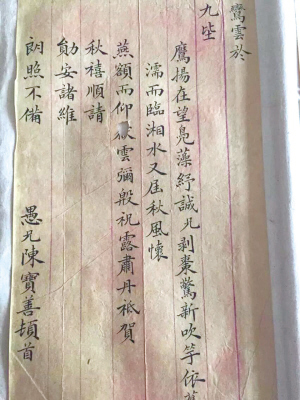 驚雲於
九坒
鷹揚在望鳧藻紓誠兄剥棗驚新吹竽依
濡而臨湘水又屆秋風懷
燕額而仰嶽雲彌殷祝露肅丹祗賀
秋禧順請
勛安諸維
朗照不備
愚兄陳寶善頓首